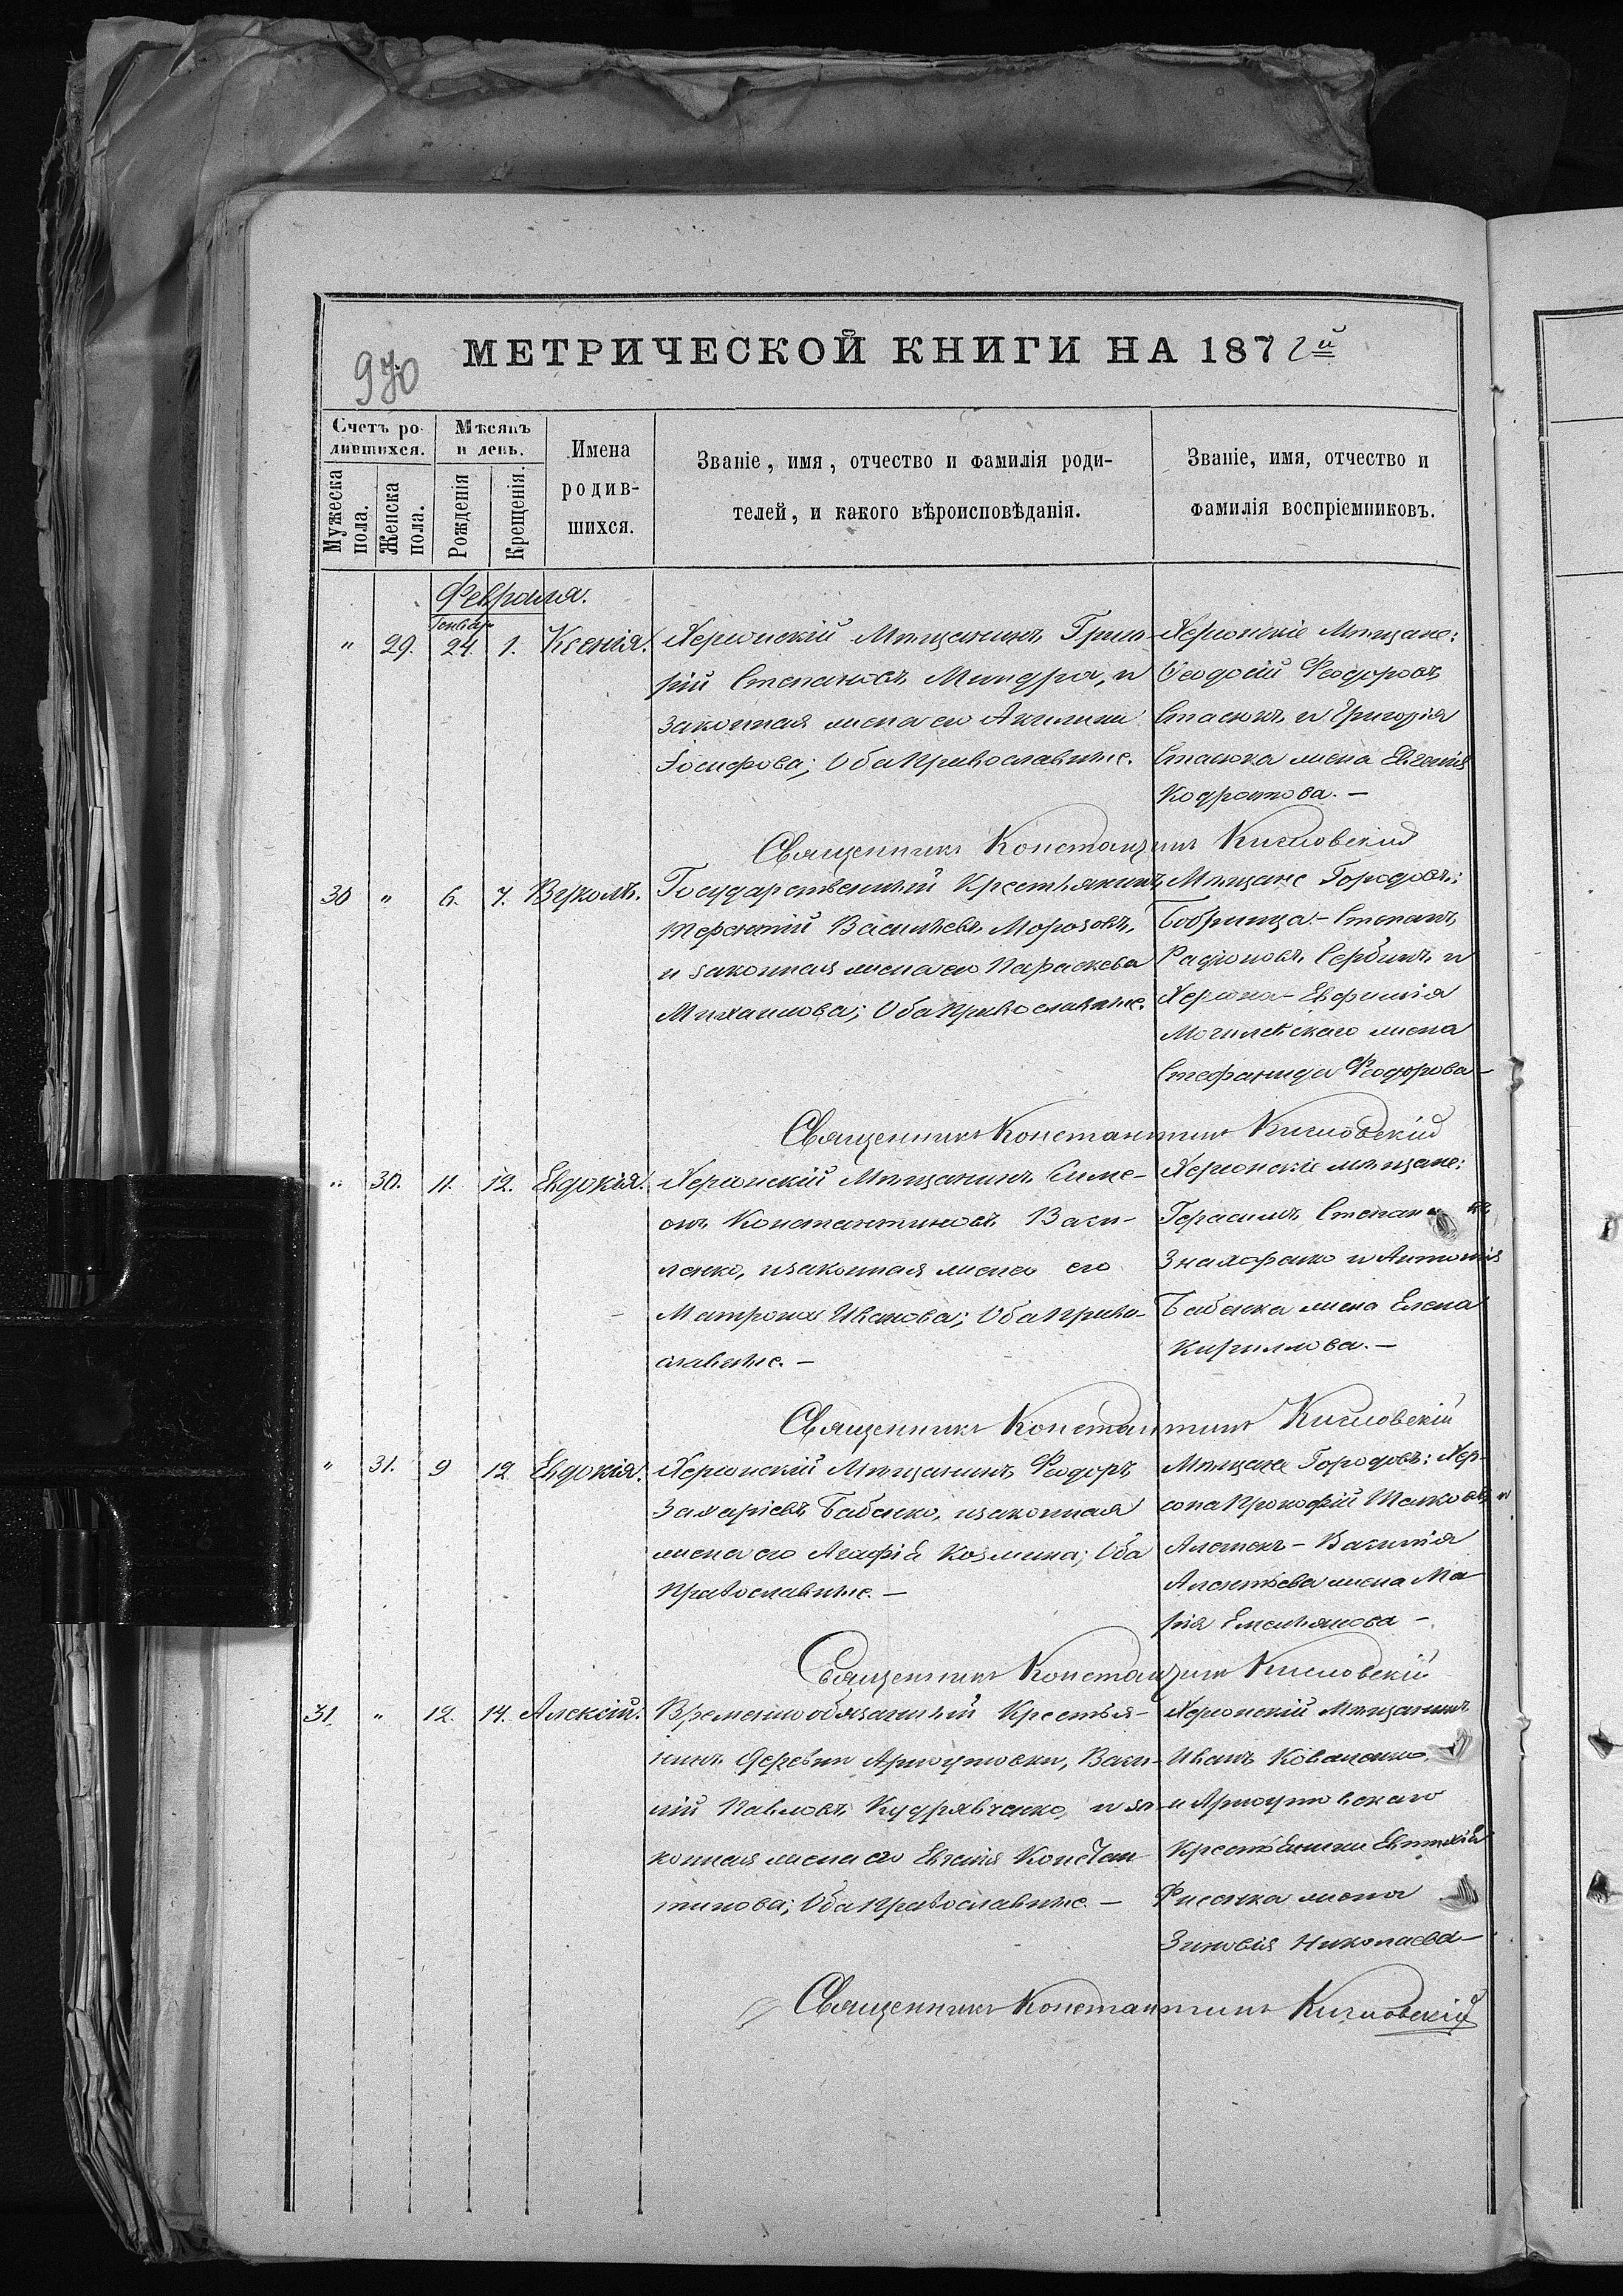 МЕТРИЧЕСКОЙ КНИГИ НА 1872й
970
Счетъ ро-
дившихся.
Мѣсяцъ
и день.
Мужеска
пола.
Женска
пола.
Рожденія
Крещенія.
Имена
родив-
шихся.
Званіе, имя, отчество и фамилія роди-
телей, и какого вѣроисповѣданія.
Званіе, имя, отчество и
фамилія воспріемниковъ.
Февраля.
Генвар
" 29. 24. 1. Ксенія.
Херсонскій Мѣщанинъ Григо-
рій Степановъ Миндра, и
законная жена его Акилина
Іосифова; Оба Православные.
Херсонскіе Мѣщане:
Ѳеодосій Феодоровъ
Стасюкъ и Григорія
Стасюка жена Евгенія
Кодратова. —
Священникъ Константинъ Кисловскій
30 " 6. 7. Вуколъ.
Государственный Крестьянинъ
Терентій Васильевъ Морозовъ,
и законная жена его Параскева
Михаилова; Оба Православные.
Мѣщане Городовъ:
Бобринца - Степанъ
Радіоновъ Сербинъ и
Херсона - Евфимія
Могилевскаго жена
Стефанида Феодорова —
Священникъ Константинъ Кисловскій
" 30. 11. 12. Евдокія.
Херсонскій Мѣщанинъ Симе-
онъ Константиновъ Васи-
ленко, и законная жена его
Матрона Иванова; Оба Право-
славные. —
Херсонскіе мѣщане:
Герасимъ Степановъ
и Антонія
Бабенка жена Елена
Кириллова. —
Священникъ Константинъ Кисловскій
" 31. 9 12 Евдокія.
Херсонскій Мѣщанинъ Феодоръ
Захаріевъ Бабенко, и законная
жена его Агафія Козмина; Оба
Православные. —
Мѣщане Городовъ: Хер-
сона Прокофій и
Алешекъ - Василія
жена Ма-
рія Емельянова —
Священникъ Константинъ Кисловскій
31. " 12. 14. Алексій.
Временно обязанный Крестья-
нинъ Деревни Арнаутовки, Васи-
лій Павловъ Кудрявченко, и за-
конная жена его Евгенія Констан-
тинова; Оба Православные. —
Херсонскій Мѣщанинъ
Иванъ Коваленко,
и Арнаутовскаго
Евтихія
жена
Зиновія Николаева —
Священникъ Константинъ Кисловскій